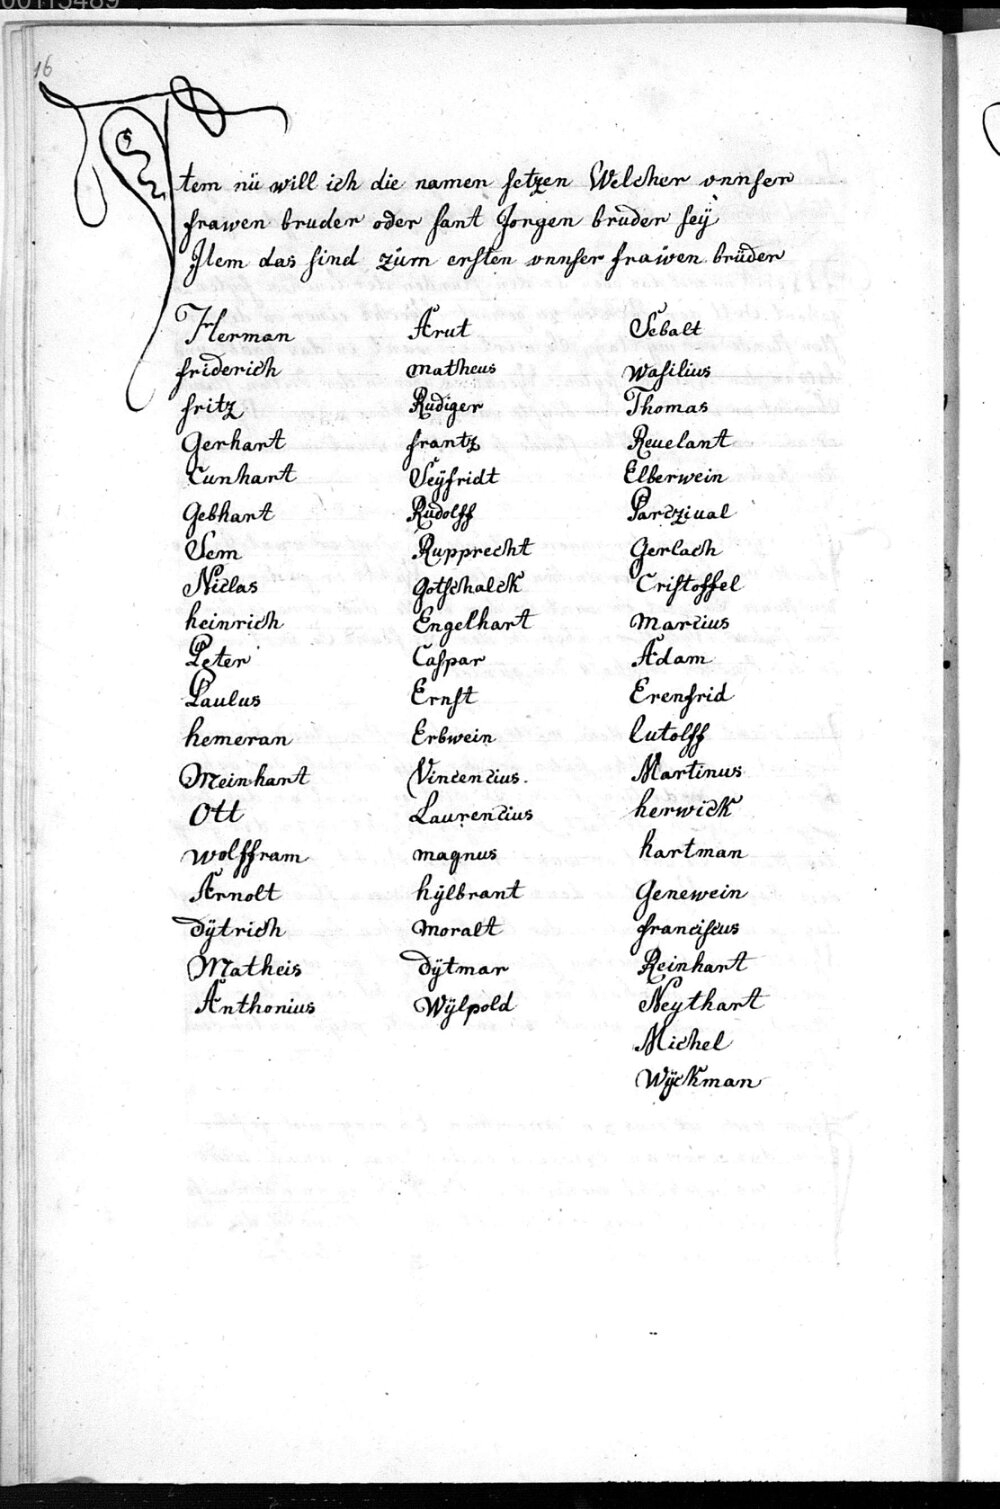 00113489
16
Item nü will ich die namen setzen Welcher vnnser
frawen bruder oder sant Jorgen bruder seÿ
Item das sind züm ersten vnnser frawen brüder
Herman
friderich
fritz
Gerhart
Cunhart
Gebhart
Sem
Niclas
heinrich
Peter
Paulus
hemeran
Meinhart
Ott
wolffram
Arnolt
dÿtrich
Matheis
Anthonius
Arut
matheus
Rudiger
frantz
Seÿfridt
Rudolff
Rupprecht
Gotschalck
Engelhart
Caspar
Ernst
Erbwein
Vincencius.
Laurencius
magnus
hÿlbrant
moralt
dÿtmar
Wÿlpold
Sebalt
wasilius
Thomas
Reuelant
Elberwein
Parcziual
Gerlach
Cristoffel
Marcius
Adam
Erenfrid
lutolff
Martinus
herwick
hartman
Genewein
franciscus
Reinhart
Neythart
Michel
Wÿckman